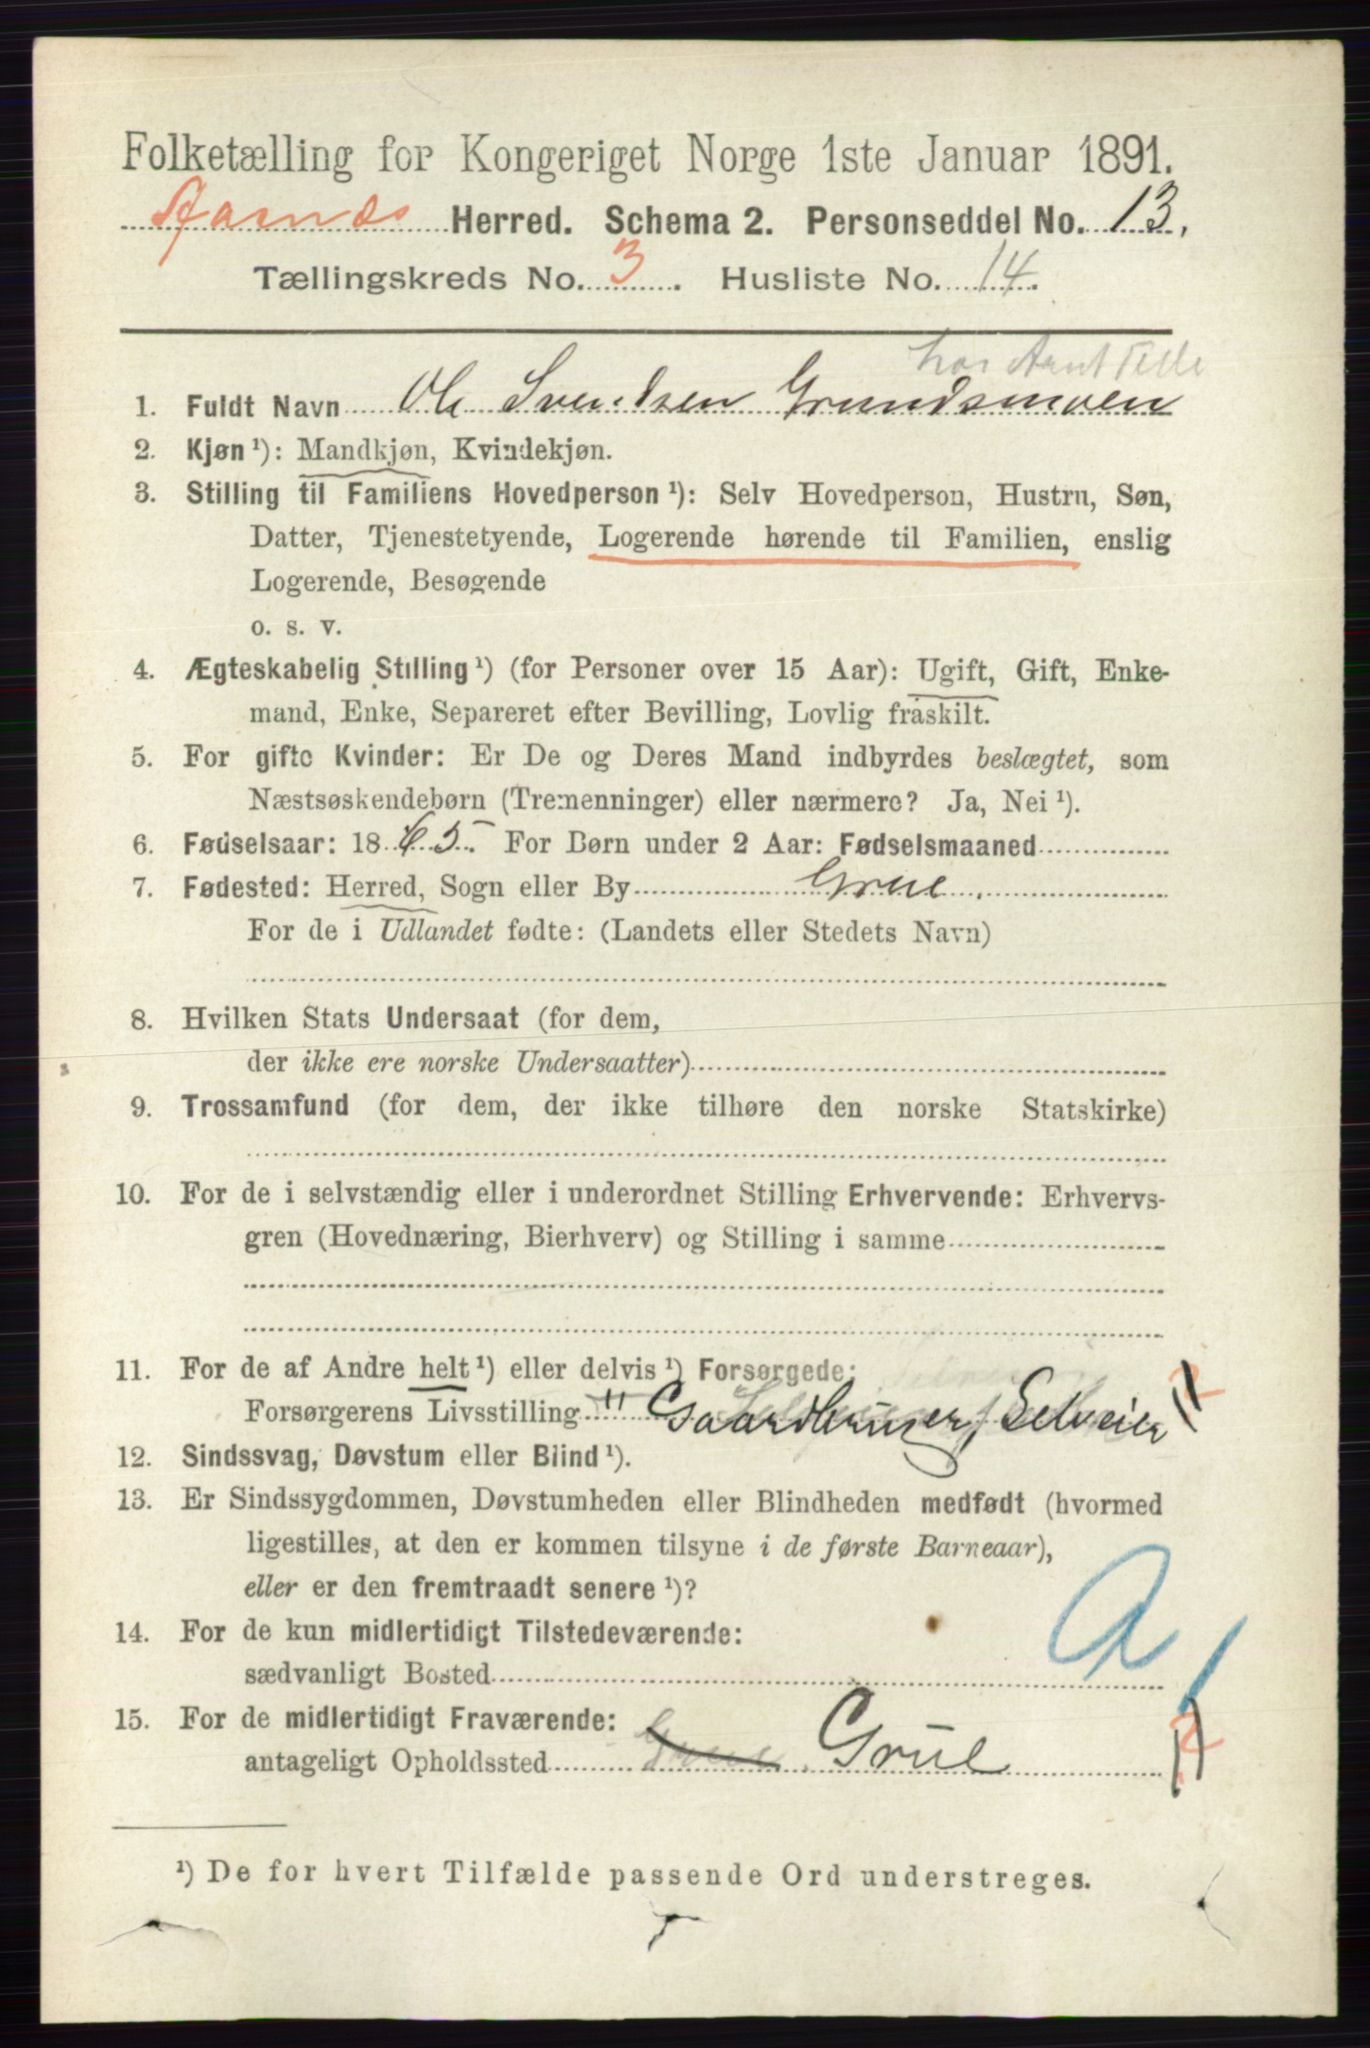 Folketælling for Kongeriget Norge 1ste Januar 1891.
Aasnæs Herred. Schema 2. Personseddel No. 13.
Tællingskreds No. 3. Husliste No. 14.
hos Arnt
1. Fuldt Navn Ole Svendsen Grundsmoen
2. Kjøn ¹): Mandkjøn, Kvindekjøn.
3. Stilling til Familiens Hovedperson ¹): Selv Hovedperson, Hustru, Søn,
Datter, Tjenestetyende, Logerende hørende til Familien, enslig
Logerende, Besøgende
o. s. v.
4. Ægteskabelig Stilling ¹) (for Personer over 15 Aar): Ugift, Gift, Enke-
mand, Enke, Separeret efter Bevilling, Lovlig fraskilt.
5. For gifte Kvinder: Er De og Deres Mand indbyrdes beslægtet, som
Næstsøskendebørn (Tremenninger) eller nærmere? Ja, Nei ¹).
6. Fødselsaar: 1865. For Børn under 2 Aar: Fødselsmaaned
7. Fødested: Herred, Sogn eller By Grue.
For de i Udlandet fødte: (Landets eller Stedets Navn)
8. Hvilken Stats Undersaat (for dem,
der ikke ere norske Undersaatter)
9. Trossamfund (for dem, der ikke tilhøre den norske Statskirke)
10. For de i selvstændig eller i underordnet Stilling Erhvervende: Erhvervs-
gren (Hovednæring, Bierhverv) og Stilling i samme
11. For de af Andre helt ¹) eller delvis ¹) Forsørgede:
Forsørgerens Livsstilling " Gaardbruger, Selveier "
12. Sindssvag, Døvstum eller Blind ¹).
13. Er Sindssygdommen, Døvstumheden eller Blindheden medfødt (hvormed
ligestilles, at den er kommen tilsyne i de første Barneaar),
eller er den fremtraadt senere ¹)?
14. For de kun midlertidigt Tilstedeværende:
sædvanligt Bosted
15. For de midlertidigt Fraværende:
antageligt Opholdssted Grue Grue
¹) De for hvert Tilfælde passende Ord understreges.